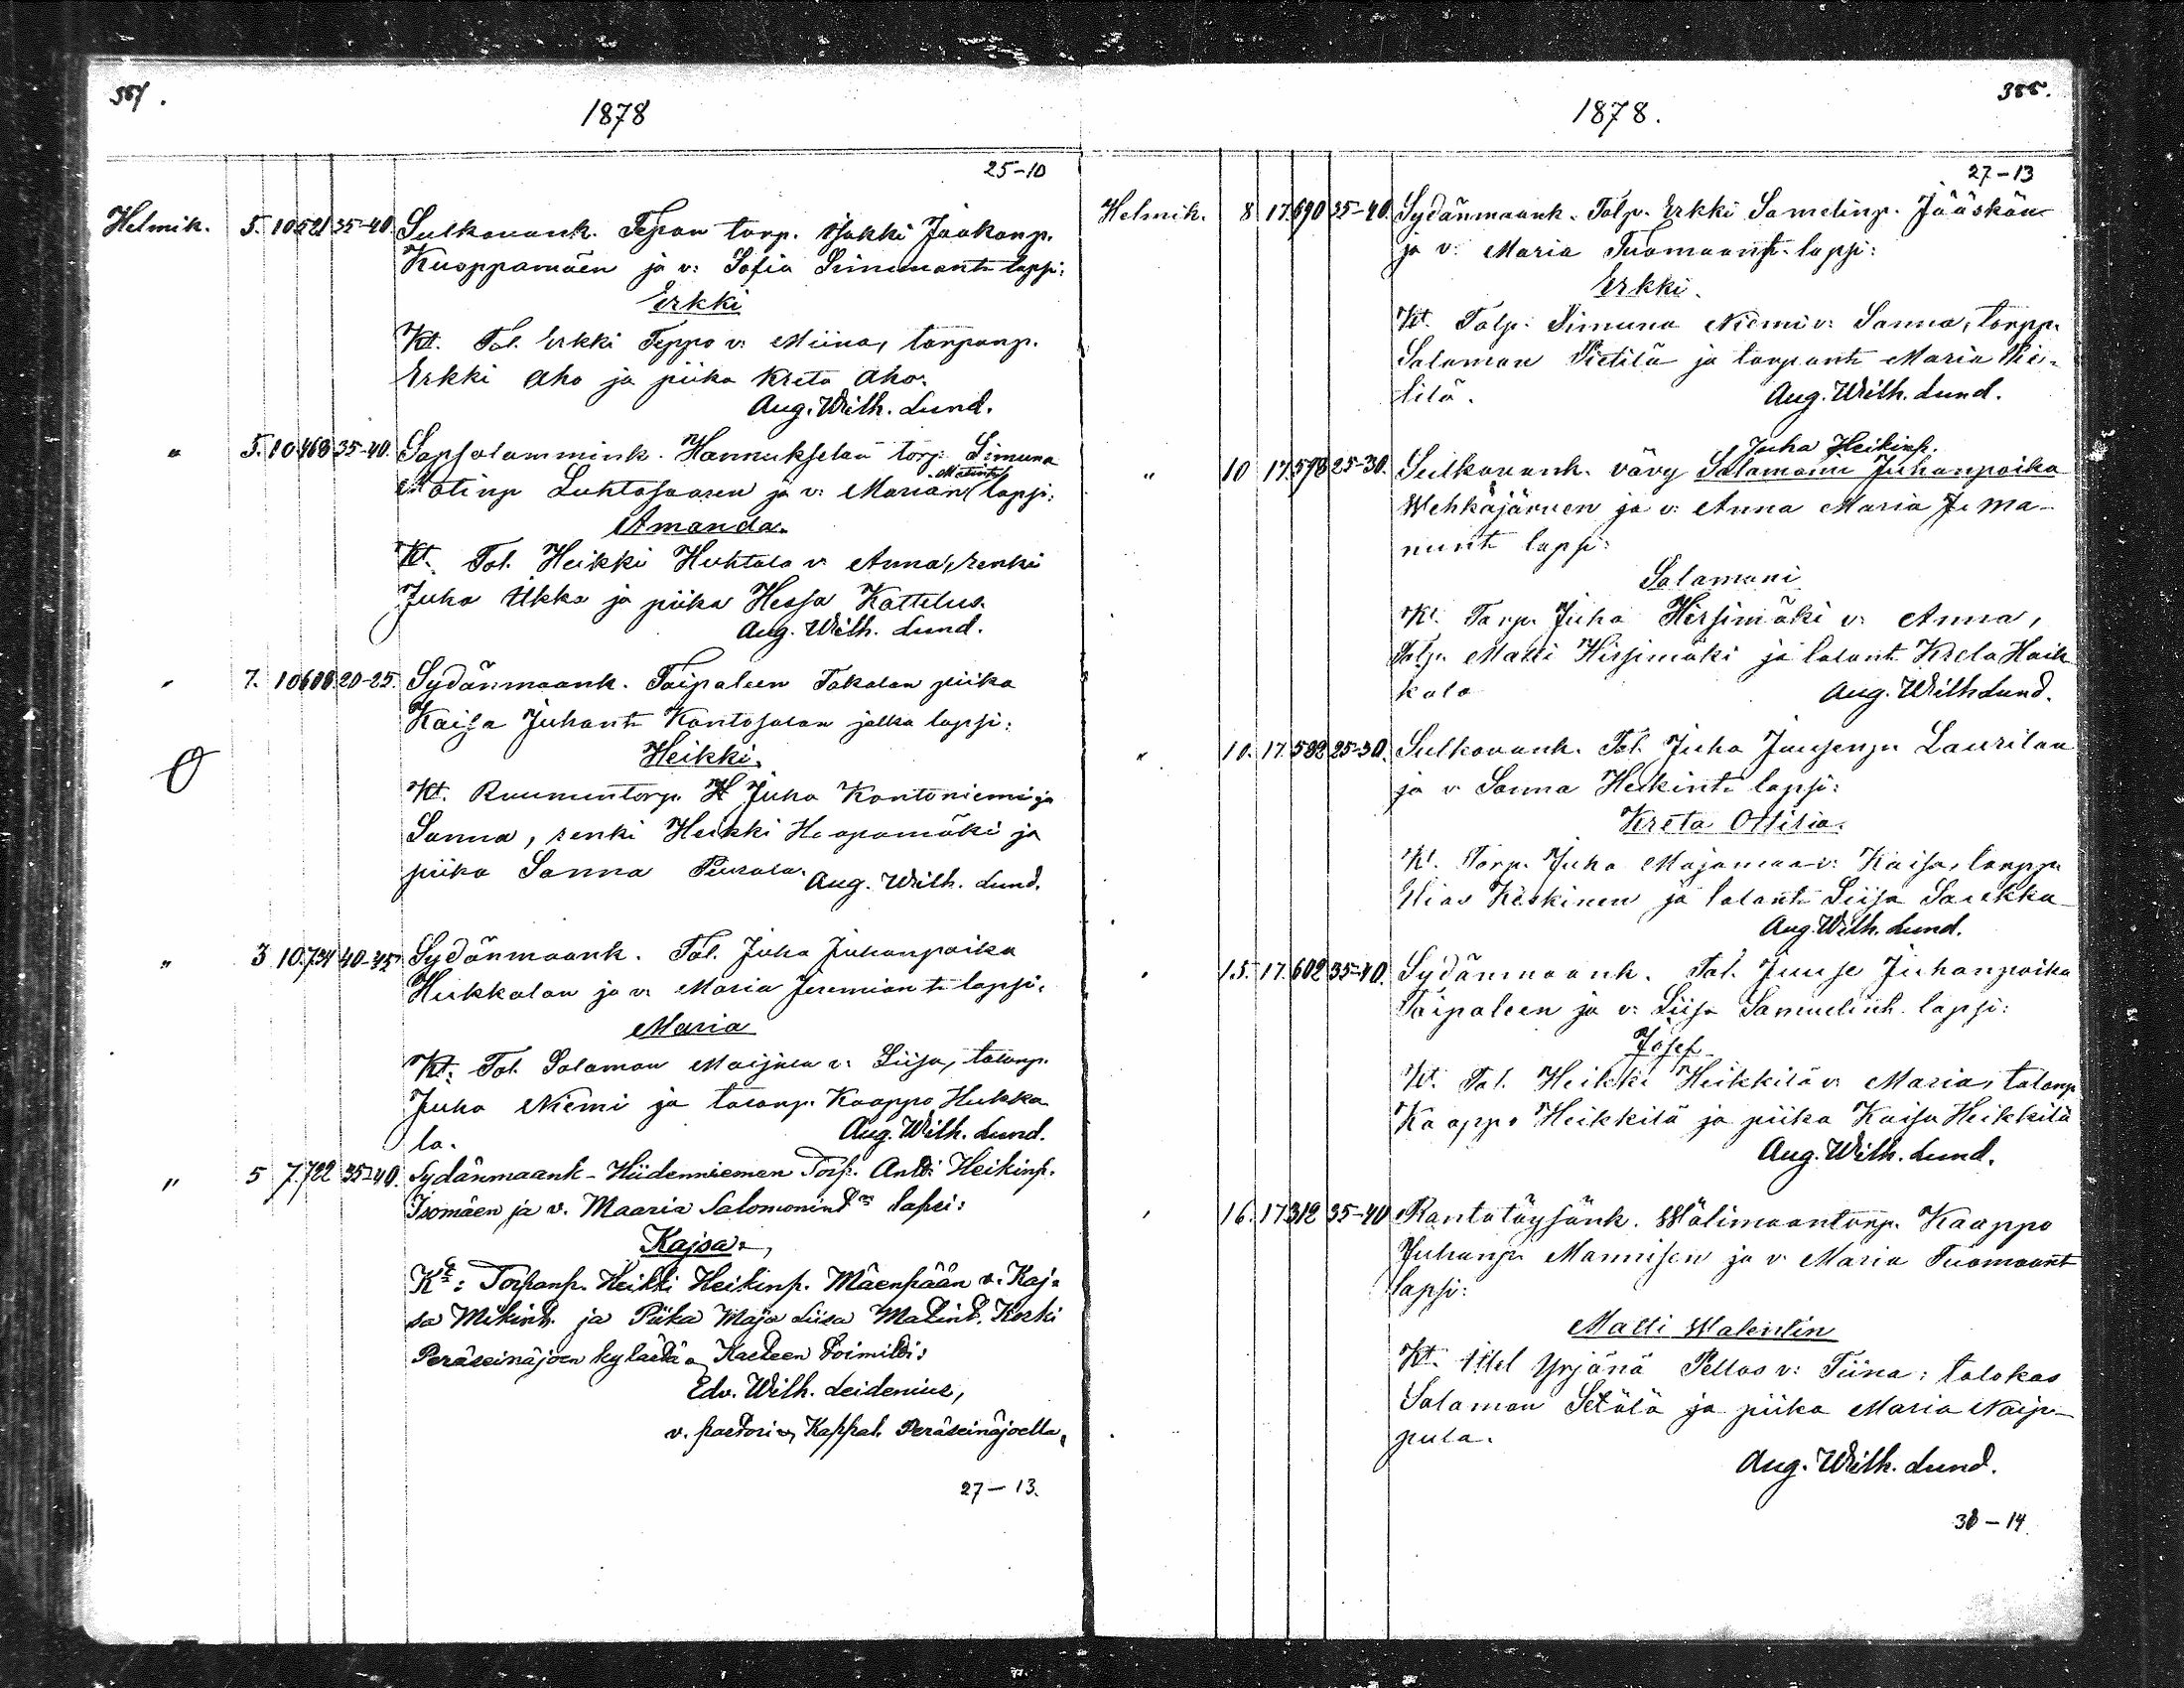 1878
25-10
Helmik. 5. 10 521 35-40. Sulkavank. Tepon torp. Jakki Jaakonp.
Kuoppamäen ja v: Sofia Simunantr lapsi:
Erkki
Kt. Tal. Erkki Teppo v: Miina, torpanp.
Erkki Aho ja piika Kreta Aho.
Aug. Wilh. Lund.
" 5. 10 468 35-40. Sapsalammink. Hannukselan torp. Simuna
Matintr
Matinp Luhtasaaren ja v: Marian lapsi:
Amanda.
Kt. Tal. Heikki Huhtala v: Anna, renki
Juha Ukka ja piika Hessa Kattelus.
Aug. Wilh. Lund.
" 7. 10 608 20-25. Sydänmaank. Taipaleen Takalan piika
Kaisa Juhantr Kantosalan jalka lapsi:
Heikki.
Kt. Ruumentorp. H Juha Kantoniemi ja
Sanna, renki Heikki Haapamäki ja
piika Sanna Peurala.
Aug. Wilh. Lund.
" 3 10. 734 40-45 Sydänmaank. Tal. Juha Juhanpoika
Hukkalan ja v: Maria Jeremiantr lapsi:
Maria
Kt: Tal. Salaman Maijala v: Liisa, talonp.
Juha Niemi ja talonp. Kaappo Hukka
la.
Aug. Wilh. Lund.
" 5 7. 722 35-40. Sydänmaank- Hiidenniemen Torp. Antti Heikinp.
Isomäen ja v. Maaria Salomonintr lapsi:
Kajsa
Kt: Torpanp. Heikki Heikinp. Mäenpään v. Kaj=
sa Mikint. ja Piika Maja Liisa Matint. Koski
Peräseinäjoen kylästä Kasteen toimitti:
Edv. Wilh. Leidenius,
v. pastori Kappal. Peräseinäjoella,
27-13.
385.
1878.
27-13
Helmik. 8 17. 690 35-40. Sydänmaank. Talp. Erkki Samelinp. Jääskän
ja v: Maria Tuomaantr. lapsi:
Erkki.
Kt. Talp. Simuna Niemi v: Sanna, torpp.
Salaman Pietilä ja torpantr Maria Pie-
tilä.
Aug. Wilh. Lund.
Juha Heikinp.
" 10 17. 598 25-30. Sulkavank. vävy Salamoni Juhanpoika
Wehkäjärven ja v: Anna Maria Ja Ma-
nuntr lapsi:
Salamoni
Kt. Torp. Juha Hirsimäki v: Anna,
Talp. Matti Hirsimäki ja talantr Kreta Haik
kala
Aug. Wilh Lund.
" 10. 17. 582 25-30. Sulkavank. Tal. Juha Juusenp. Laurilan
ja v Sanna Heikintr lapsi:
Kreta Otsilia.
Kt. Torp. Juha Majamaa v: Kaisa, torpp.
Elias Keskinen ja talantr Liisa Sarekka
Aug. Wilh. Lund.
" 15. 17. 602 35-40. Sydänmaank. Tal. Juuse Juhanpoika
Taipaleen ja v: Liisa Samuelintr lapsi:
Josef
Kt. Tal. Heikki Heikkilä v: Maria, talonp
Kaappo Heikkilä ja piika Kaisa Heikkilä
Aug. Wilh. Lund.
" 16. 17 312 35-40 Rantatöysänk. Wälimaantorp. Kaappo
Juhanp. Mannisen ja v: Maria Tuomaant
lapsi:
Matti Walentin
Kt. Yrjänä Pellas v: Tiina: talokas
Salaman Setälä ja piika Maria Naip-
pula.
Aug. Wilh. Lund.
30-14